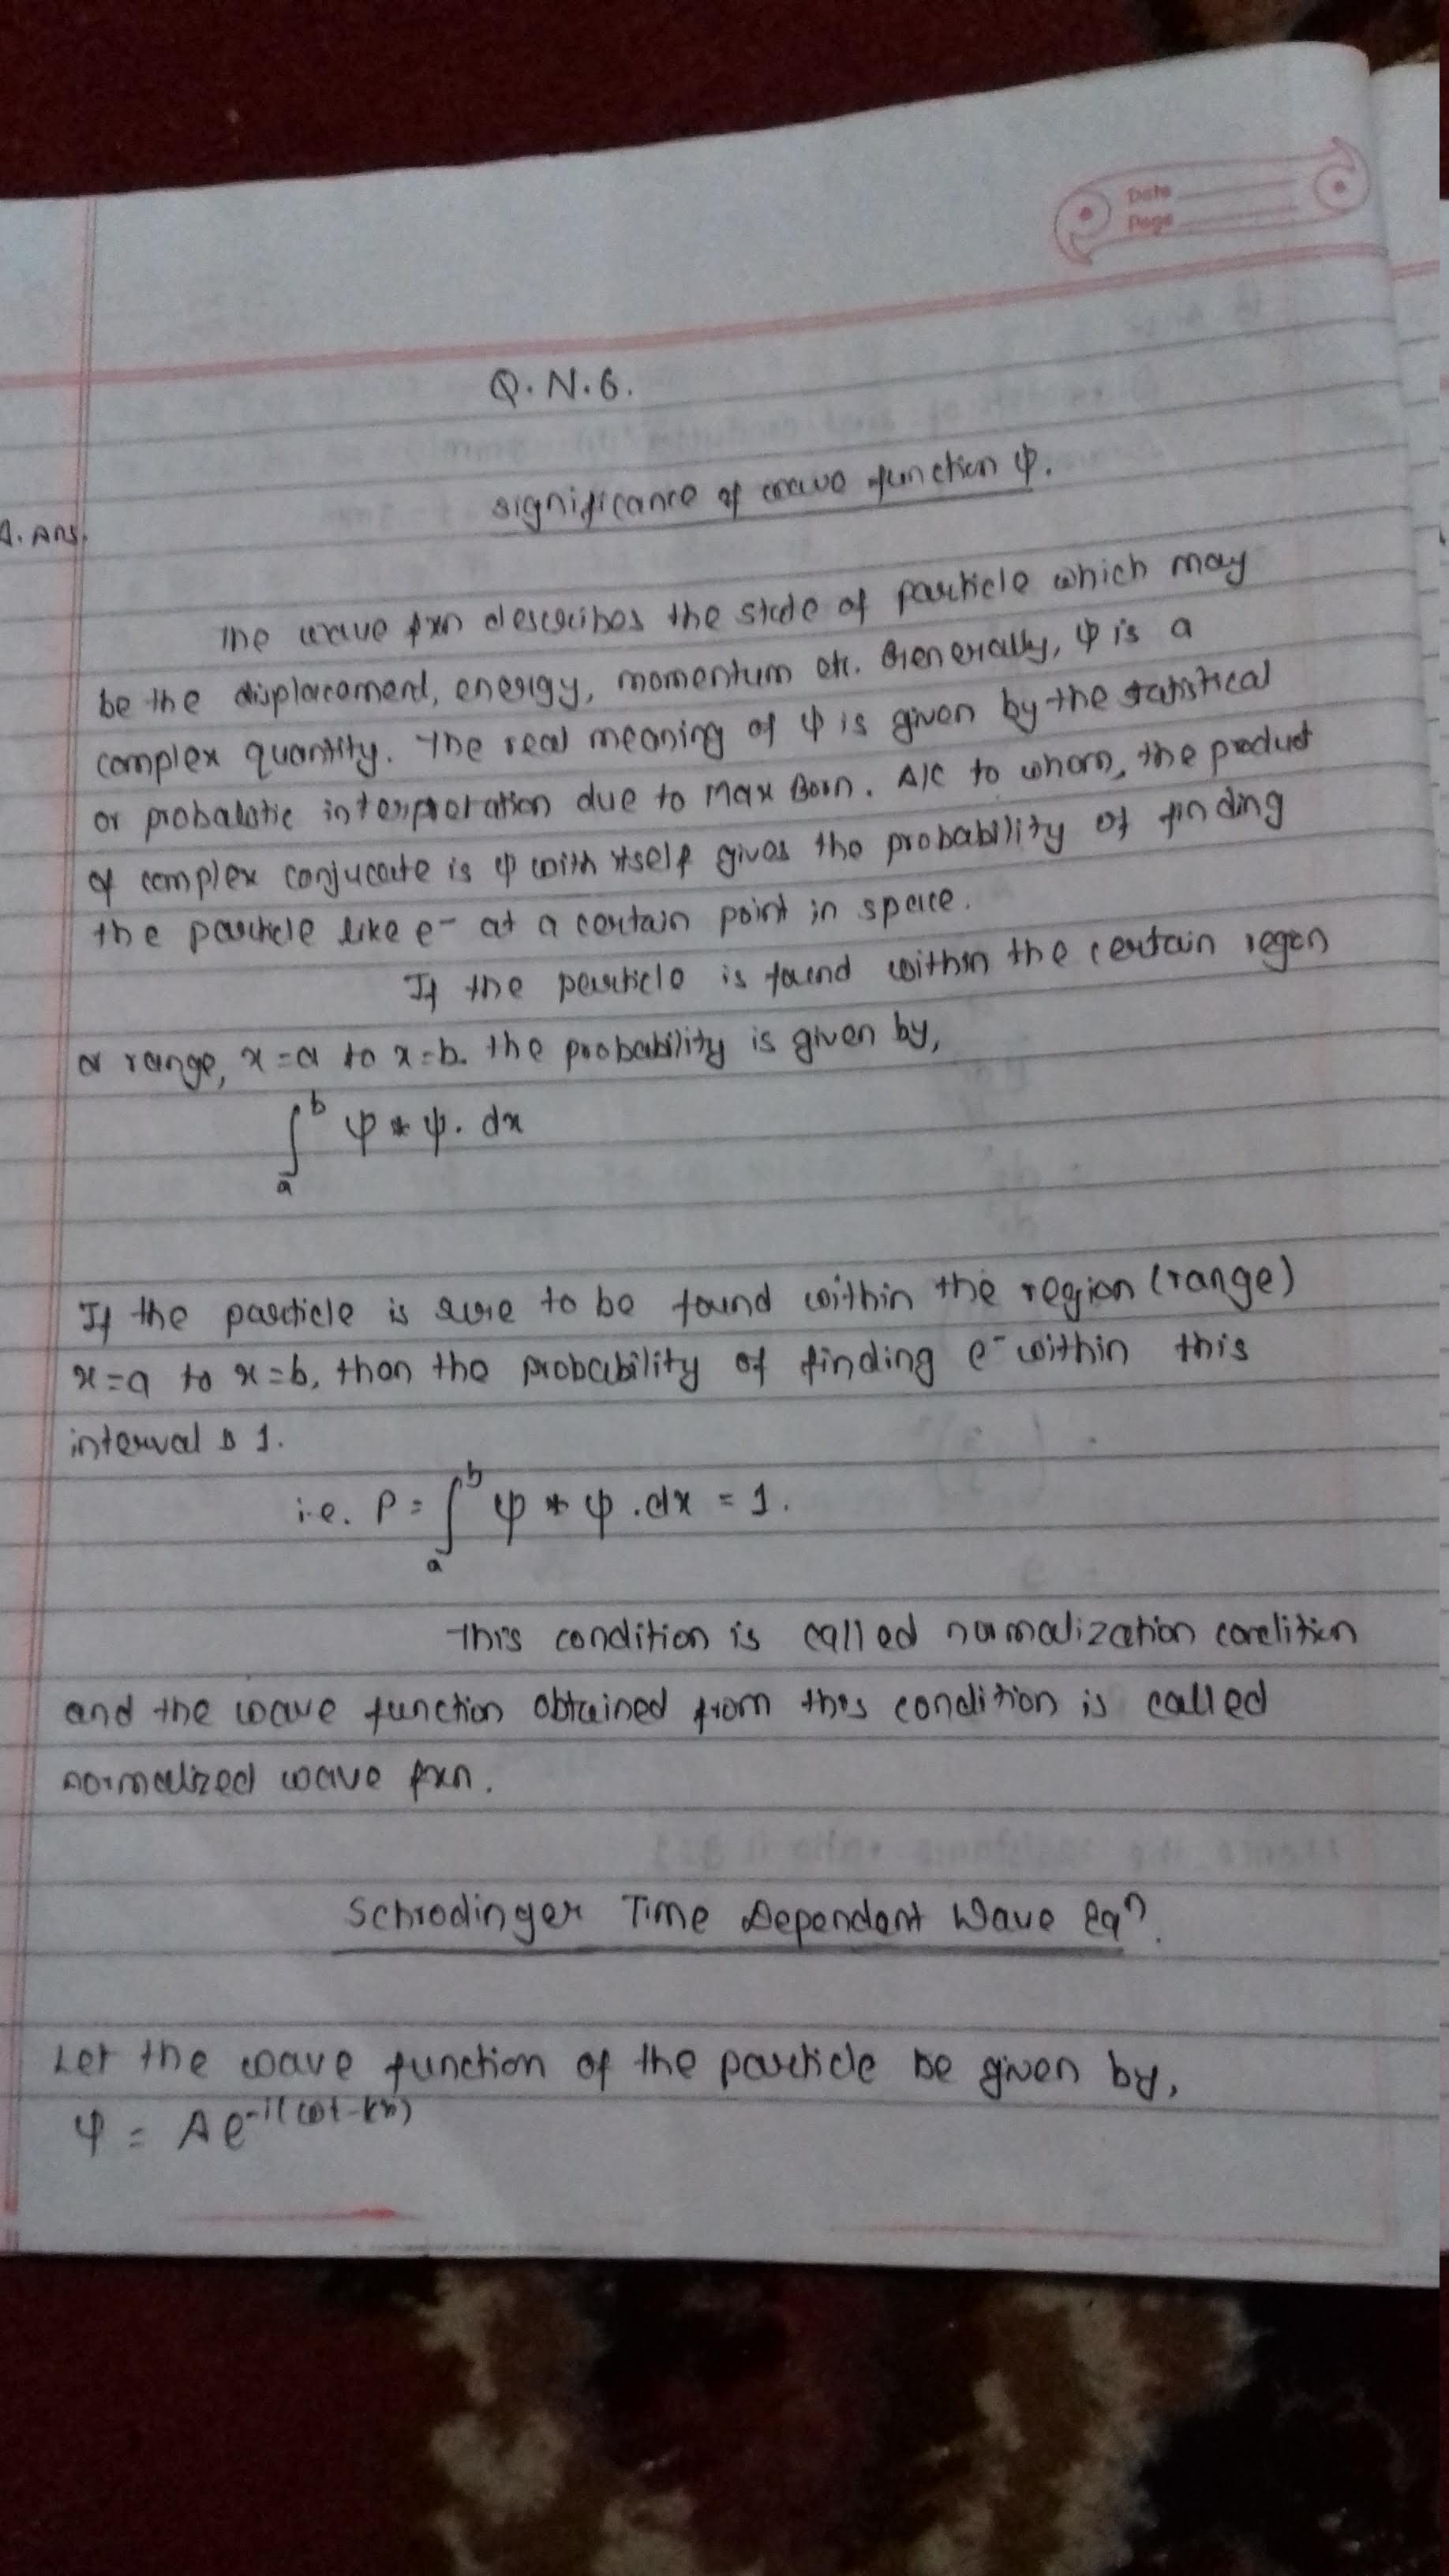 Date
Page
Q.N.6.
significance of wave function ψ.
Ans.
The wave fxn describes the state of particle which may
be the displacement, energy, momentum etc. Generally, ψ is a
complex quantity. The real meaning of ψ is given by the statistical
or probalistic interpretation due to Max Born. A/C to whom, the product
of complex conjucate is ψ with itself gives the probability of finding
the particle like e⁻ at a certain point in space.
If the particle is found within the certain region
or range, x=a to x=b. the probability is given by,
∫ₐᵇ ψ * ψ. dx
If the particle is sure to be found within the region (range)
x=a to x=b, then the probability of finding e⁻ within this
interval is 1.
i.e. P = ∫ₐᵇ ψ * ψ .dx = 1.
This condition is called normalization condition
and the wave function obtained from this condition is called
normalized wave fxn.
Schrodinger Time Dependent Wave Eqⁿ.
Let the wave function of the particle be given by,
ψ = Ae^-i(ωt-kx)